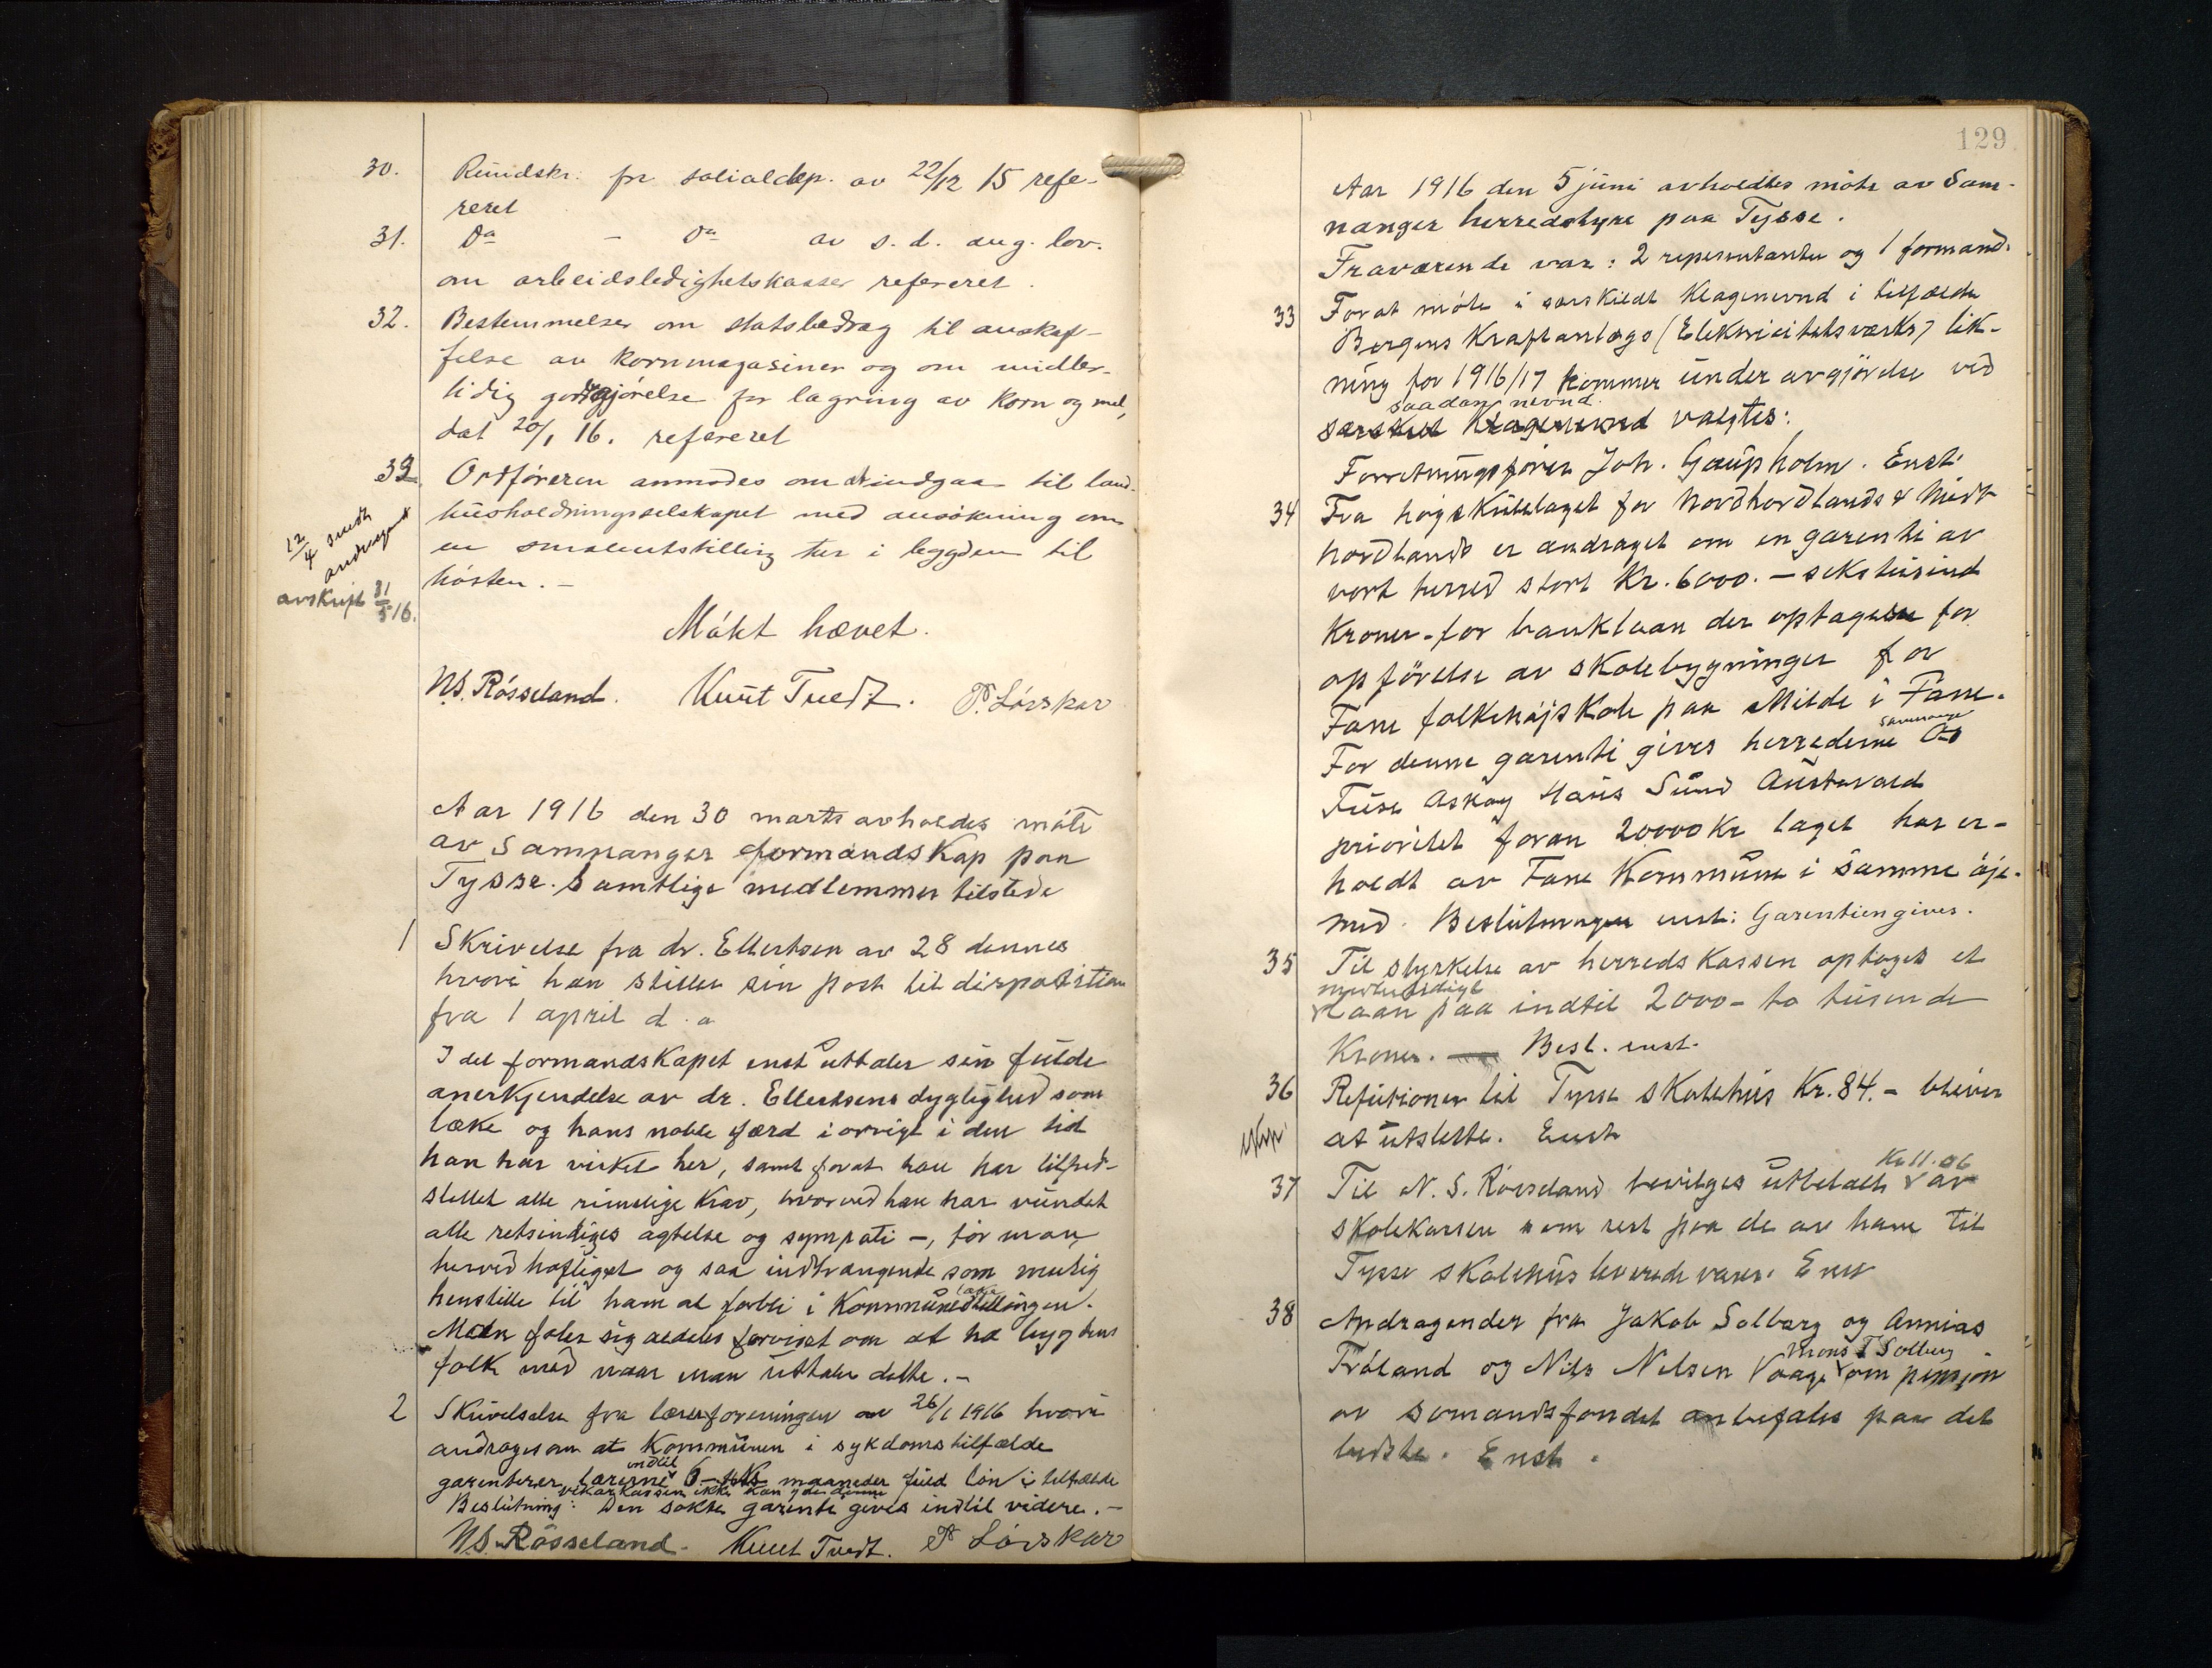 30. Rundskr. fra socialdep. av 22/12 15 refe-
reret
31. Do - Do av s. d. ang. lov.
om arbeidsledighetskasser refereret.
32. Bestemmelser om statsbedrag til anskaf-
felse av kornmagasiner og om midler-
tidig godtgjörelse for lagring av korn og mel,
dat 20/1 16. refereret
33. Ordföreren anmodes om at indgaa til land-
husholdningsselskapet med ansökning om
en smaleutstilling her i bygden til
hösten. -
12/4 sendt
andraget
avskrift 31/5 16.
Mökt hævet.
N.S. Rösseland. Knut Tvedt. P. Lövskar
Aar 1916 den 30 marts avholdes möte
av Samnanger formandskap paa
Tysse. Samtlige medlemmer tilstede
1 Skrivelse fra dr. Ellertsen av 28 dennes
hvori han stiller sin post til disposition
fra 1 april d. a
I det formandskapet enst uttaler sin fulde
anerkjendelse av dr. Ellertsens dyglighed som
læke og hans noble færd i övrigt i den tid
han har virket her, samt forat han har tilfred-
stillet alle rimelige krav, hvorved han har vundet
alle retsindiges agtelse og sympati -, tör man
herved höfligst og saa indtrængende som mulig
læge
henstille til ham at forbli i Kommunestillingen.
Man föler sig aldeles forvisset om at ha bygdens
folk med naar man uttaler dette. -
2 Skrivelse fra lærerforeningen av 26/1 1916 hvori
andrages om at Kommunen i sykdomstilfælde
indtil
garenterer lærerne 6 - seks maaneder fuld lön i tilfælde
vikarkassen ikke kan yde denne
Beslutning: Den sökte garenti gives indtil videre. -
N.S. Rösseland. Knut Tvedt. P Lövskar
129
Aar 1916 den 5 juni avholdtes möte av Sam-
nanger herredstyre paa Tysse.
Fraværende var: 2 representanter og 1 formand.
33 Forat möte i særskildt klagenevnd i tilfælde
Bergens Kraftanlægs (Elektricitetsværks) lik-
ning for 1916/17 kommer under avgjörelse ved
saadan nevnd.
særskilt Klagenevnd valgtes:
Forretningsförer Joh. Gaupholm. Enst.
34 Fra högskulelaget for Nordhordland & Midt-
hordland er andraget om en garenti av
vort herred stort Kr. 6000. - sekstusind
Kroner - for banklaan der optages for
opförelse av skolebygninger for
Fane folkehöjskole paa Milde i Fane.
Samnanger
For denne garenti gives herrederne Os
Fuse Asköy Haus Sund Austevold
prioritet foran 20000 Kr laget har er-
holdt av Fane Kommune i samme öje-
med. Beslutningen enst: Garentien gives.
35 Til styrkelse av herredskassen optages et
midlertidigt
laan paa indtil 2000 - to tusende
Kroner. Besl. enst.
36 Refusionen til Tysse skolehus Kr. 84. - bliver
at utslette. Enst
Kr 11.06
37 Til N. S. Rösseland bevilges utbetalt av
skolekassen som rest paa de av ham til
Tysse skolehus leverede varer. Enst
38 Andragender fra Jakob Solberg og Annias
Mons T Solberg
Fröland og Nils Nilsen Vaage om pensjon
av sömandsfondet anbefales paa det
bedste. Enst.